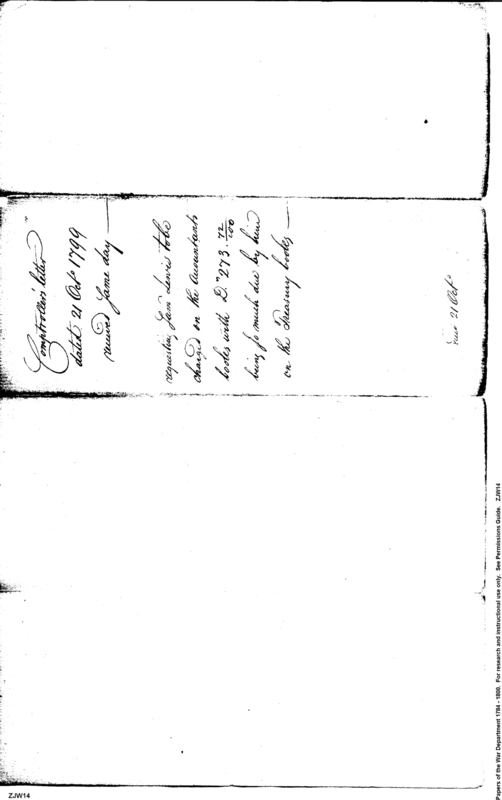 Comptroller's letter
dated 21 Octo 1799
received Same day
requesting Saml Lewis to be
charged on the Accountants
books with D.rs 273. 72/100
being so much due by him
on the Treasury books
21 Octo
Papers of the War Department 1784 - 1800. For research and instructional use only. See Permissions Guide. ZJW14
ZJW14